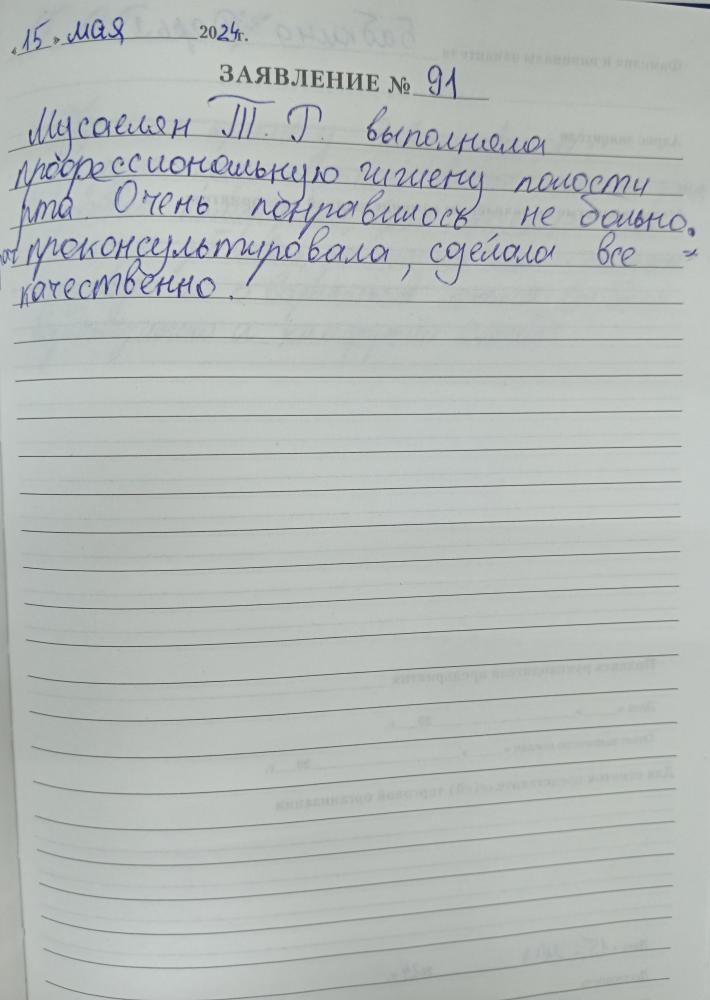 «15» мая 2024г.
ЗАЯВЛЕНИЕ № 91
Мусаелян Т. Г. выполняла
профессиональную гигиену полости
рта. Очень понравилось не больно.
проконсультировала, сделала все
качественно.